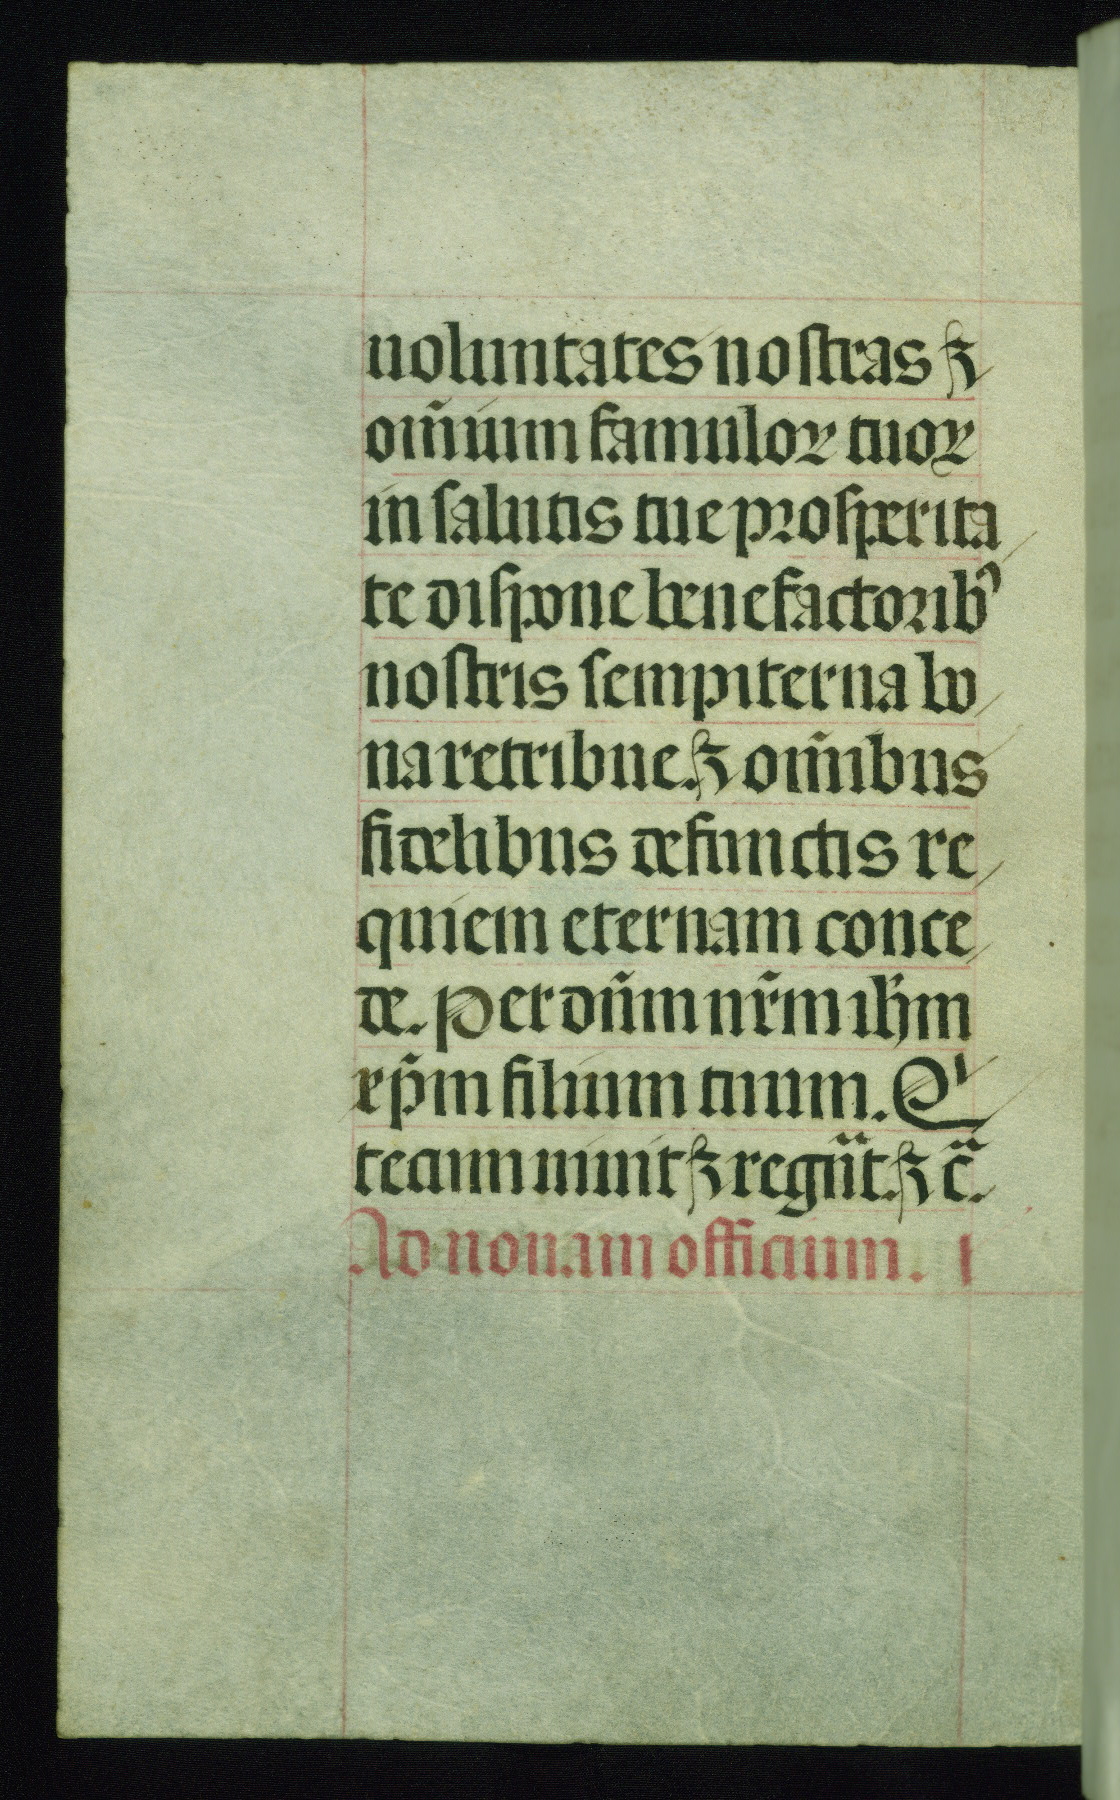 uoluntates nostras ⁊
om̄ium famuloꝝ tuoꝝ
in salutis tue prosperita
te dispone benefactoribꝰ
nostris sempiterna bo
na retribue. ⁊ om̄ibus
fidelibus defunctis re
quiem eternam conce
de. Per dn̄m nr̄m ihm̄
xp̄m filium tuum. Qͥ
tecum uiuit ⁊ regn̄at. ⁊ c̄.
Ad nonam officium.